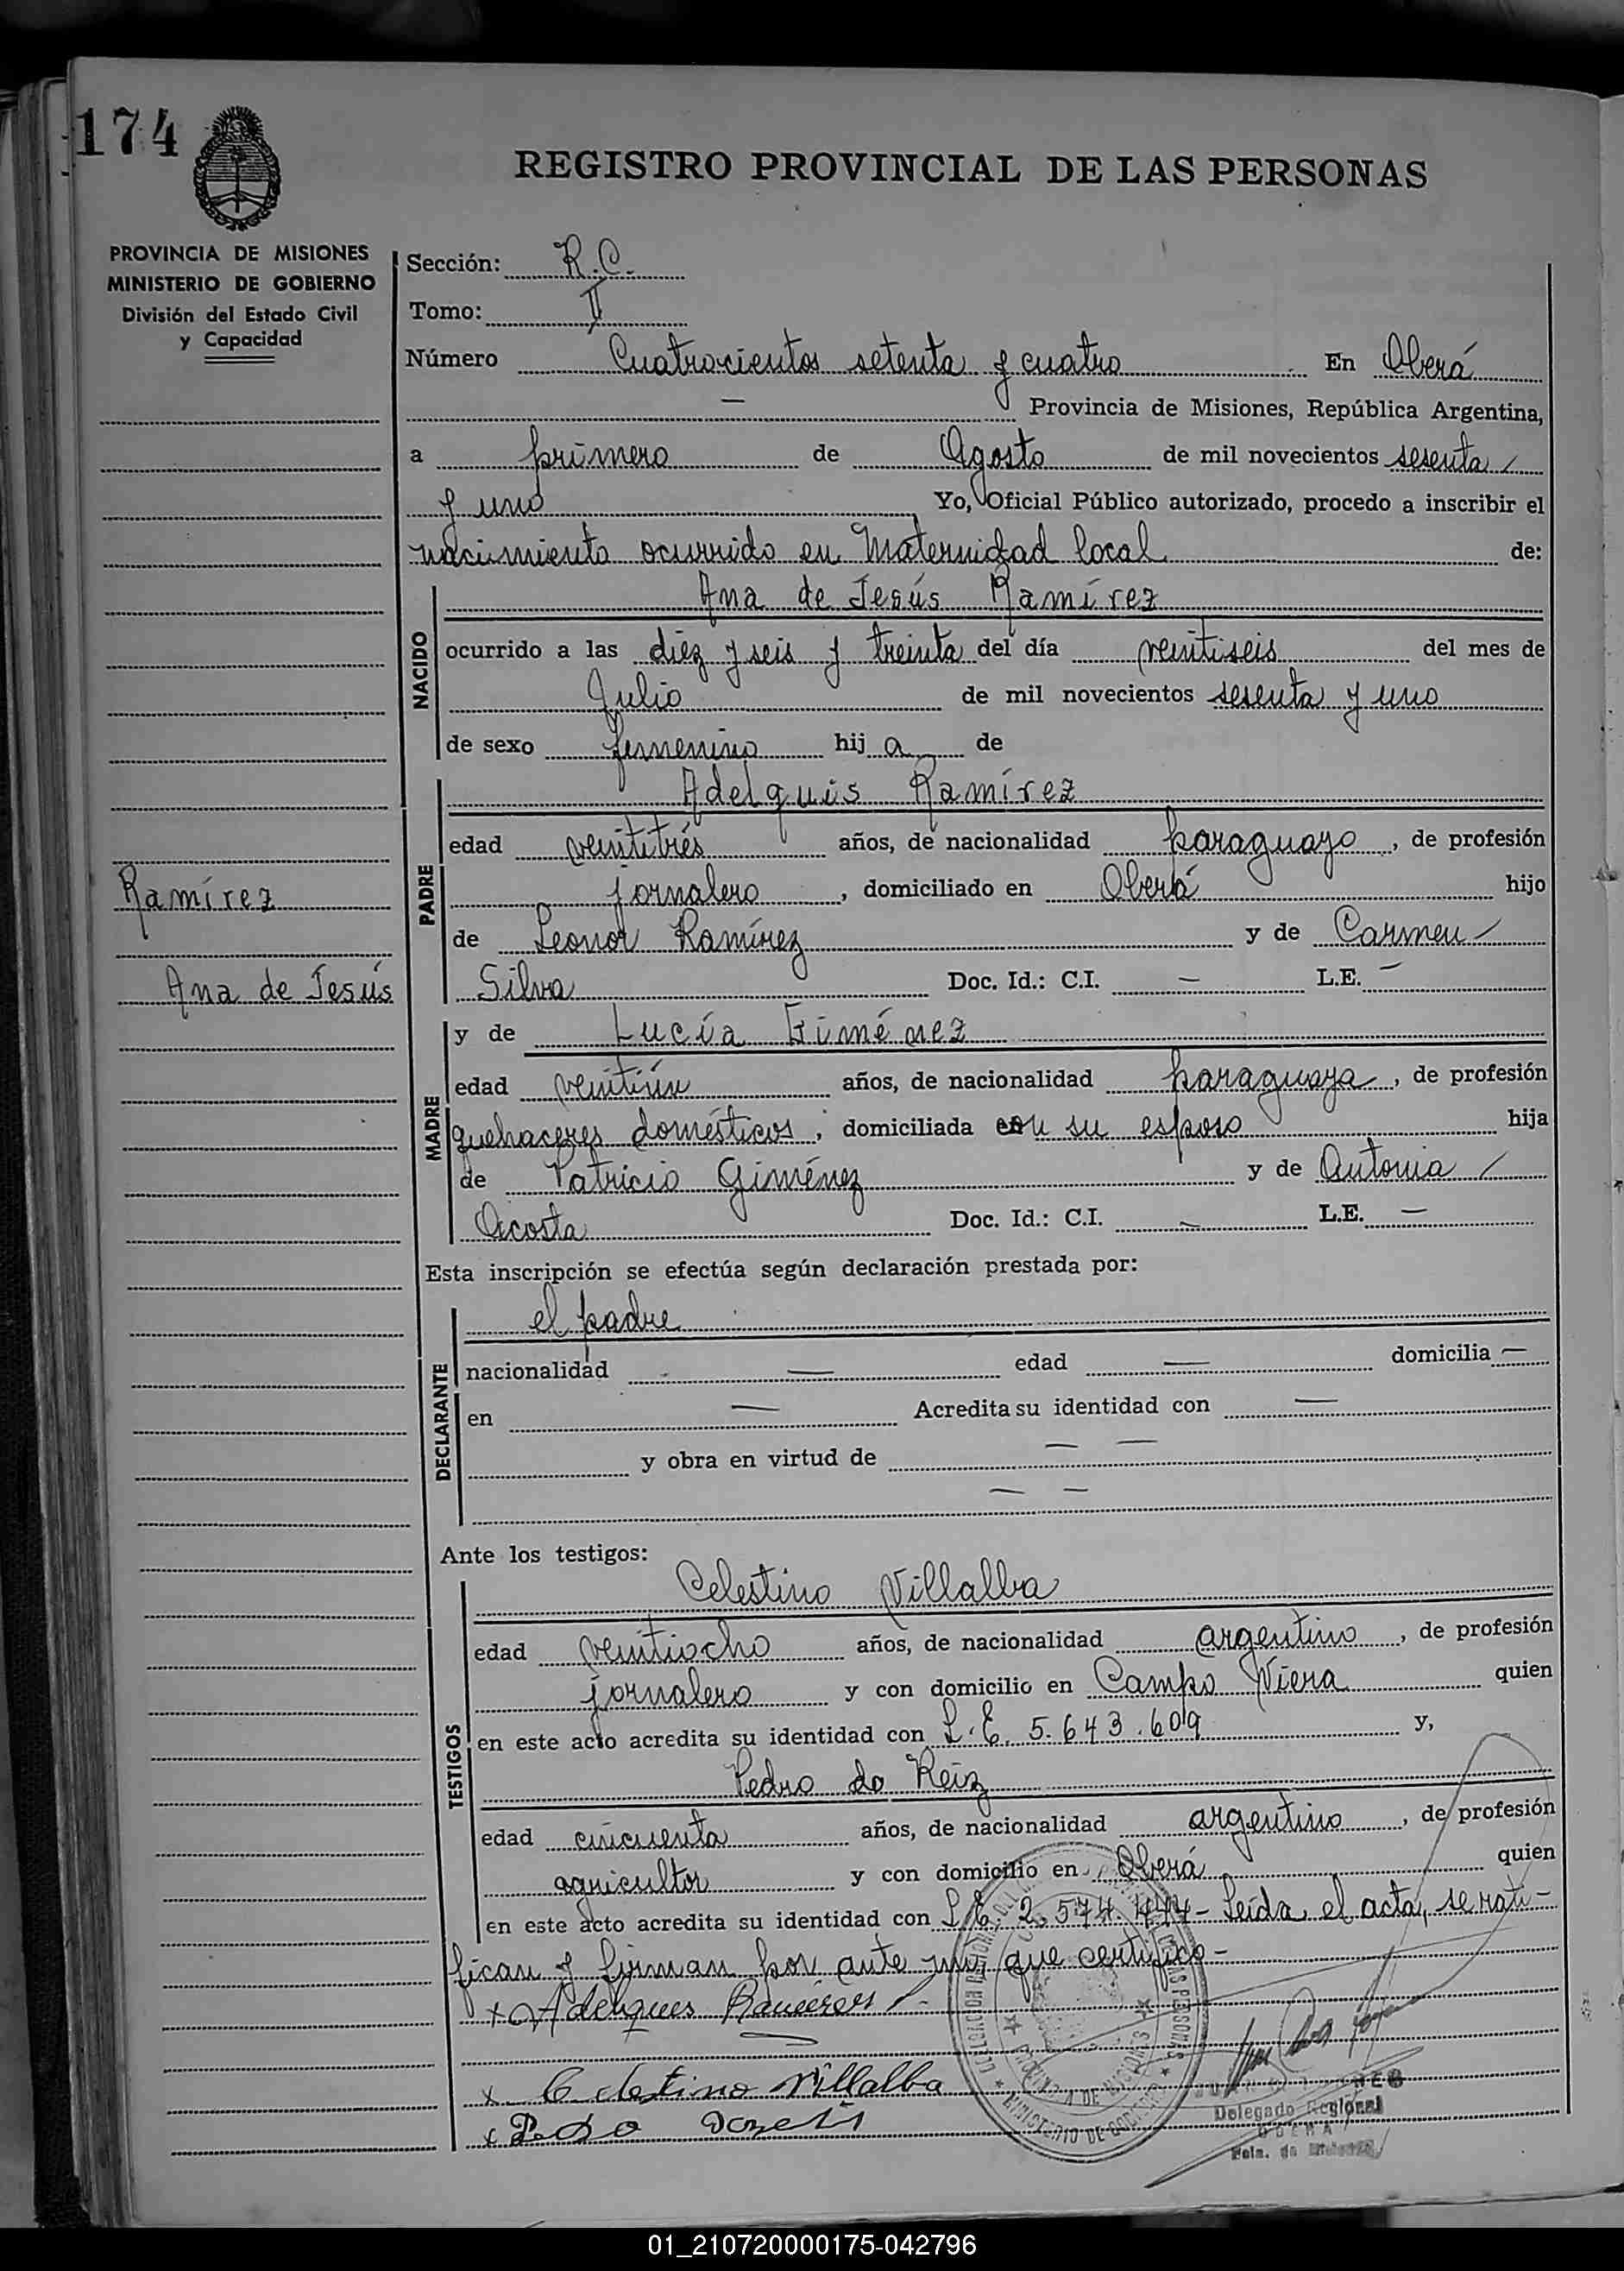 174
REGISTRO PROVINCIAL DE LAS PERSONAS
PROVINCIA DE MISIONES
MINISTERIO DE GOBIERNO
División del Estado Civil
y Capacidad
Sección: R.C.
Tomo: II
Número Cuatrocientos setenta y cuatro En Oberá
— Provincia de Misiones, República Argentina,
a primero de Agosto de mil novecientos sesenta /
y uno Yo, Oficial Público autorizado, procedo a inscribir el
nacimiento ocurrido en Maternidad local de:
NACIDO
Ana de Jesús Ramírez
ocurrido a las diez y seis y treinta del día veintiseis del mes de
Julio de mil novecientos sesenta y uno
de sexo femenino hij a de
PADRE
Adelquis Ramírez
edad veintitrés años, de nacionalidad paraguayo, de profesión
jornalero, domiciliado en Oberá hijo
de Leonor Ramírez y de Carmen /
Silva Doc. Id.: C.I. — L.E. —
Ramírez
Ana de Jesús
MADRE
y de Lucía Giménez
edad veintiún años, de nacionalidad paraguaya, de profesión
quehaceres domésticos, domiciliada con su esposo hija
de Patricio Giménez y de Antonia /
Acosta Doc. Id.: C.I. — L.E. —
Esta inscripción se efectúa según declaración prestada por:
DECLARANTE
el padre
nacionalidad — edad — domicilia —
en — Acredita su identidad con —
y obra en virtud de — —
— —
Ante los testigos:
TESTIGOS
Celestino Villalba
edad veintiocho años, de nacionalidad argentino, de profesión
jornalero y con domicilio en Campo Viera quien
en este acto acredita su identidad con L.E. 5.643.609 y,
Pedro do Reiz
edad cincuenta años, de nacionalidad argentino, de profesión
agricultor y con domicilio en Oberá quien
en este acto acredita su identidad con L.E. 2.574.444 - Leída el acta, se rati-
fican y firman por ante mí, que certifico -
x Adelques Ramirez
x Celestino Villalba
x Pedro
MINISTERIO DE GOBIERNO
PROVINCIA DE MISIONES
Delegado Regional
OBERA
01_210720000175-042796